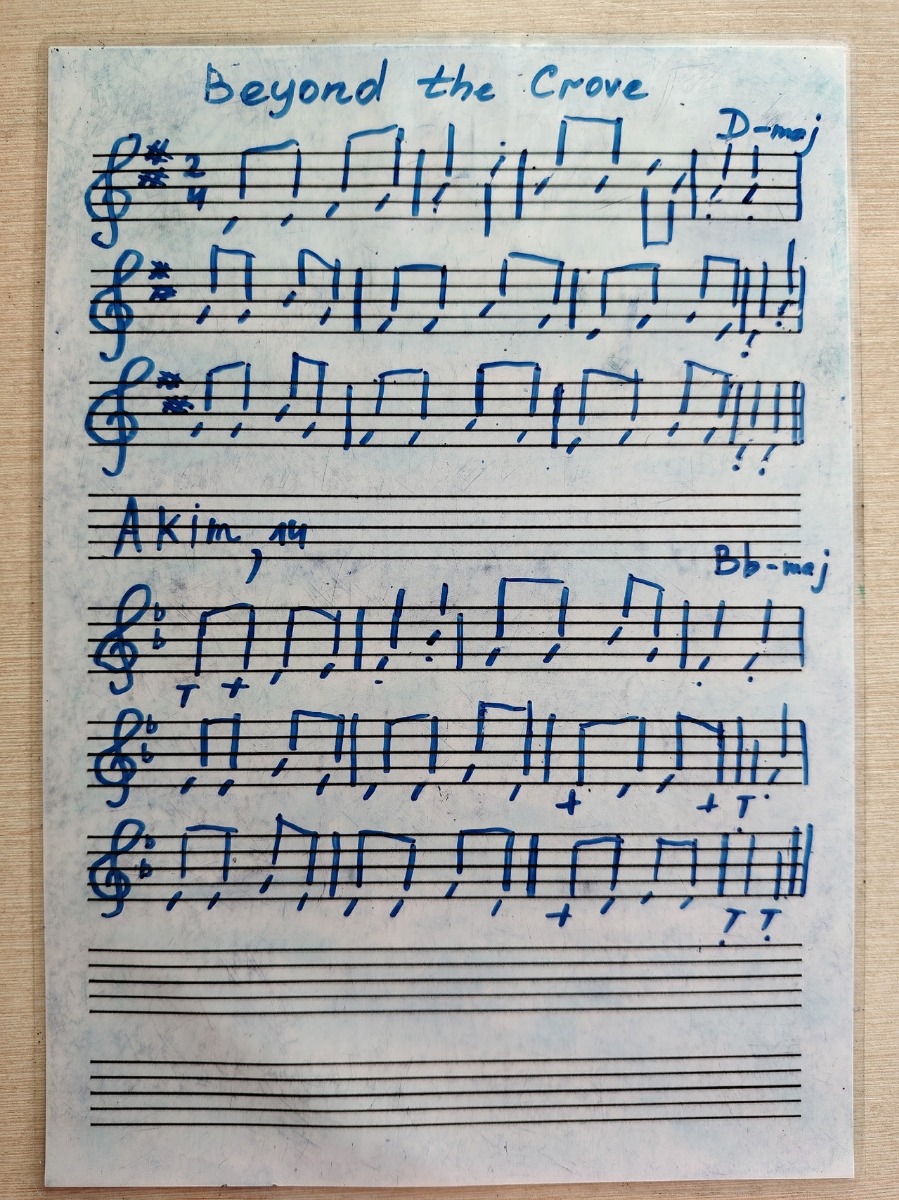 Beyond the Crove
D-maj
2
4
Akim, 14
Bb-maj